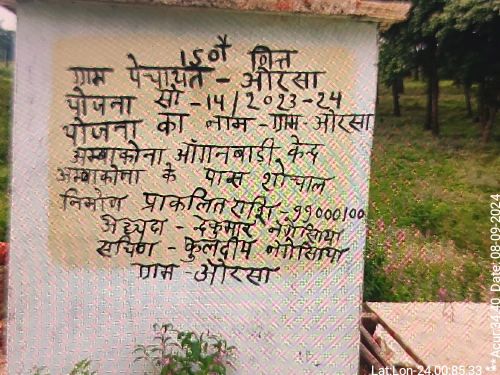 15वाँ वित्त
ग्राम पंचायत - ओरसा
योजना सं - 14/2023-24
योजना का नाम - ग्राम - ओरसा
अम्बाकोना आँगनबाडी केंद
अम्बाकोना के पास शौचाल
निर्माण प्राकलित राशि - 99000100
अध्यक्ष - देकुमार नगेसिया
सचिव - कुलदीप नगेसिया
ग्राम - ओरसा
Lat Lon-24.00:85.33 ** Acur:14.40 Date: 08-09-2024